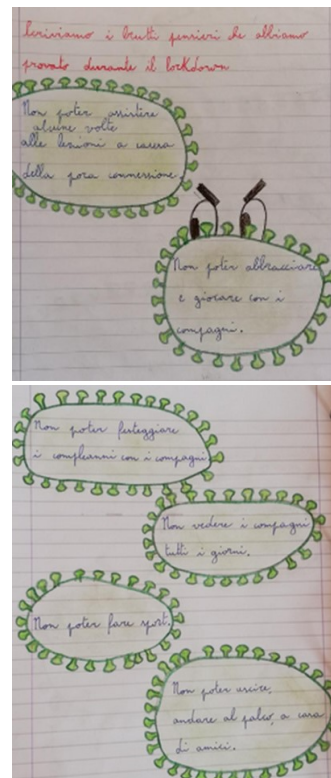 Scriviamo i brutti pensieri che abbiamo
provato durante il lockdown
Non poter assistere
alcune volte
alle lezioni a causa
della poca connessione.
Non poter abbracciare
e giocare con i
compagni.
Non poter festeggiare
i compleanni con i compagni
Non vedere i compagni
tutti i giorni.
Non poter fare sport.
Non poter uscire,
andare al palco, a casa
di amici.